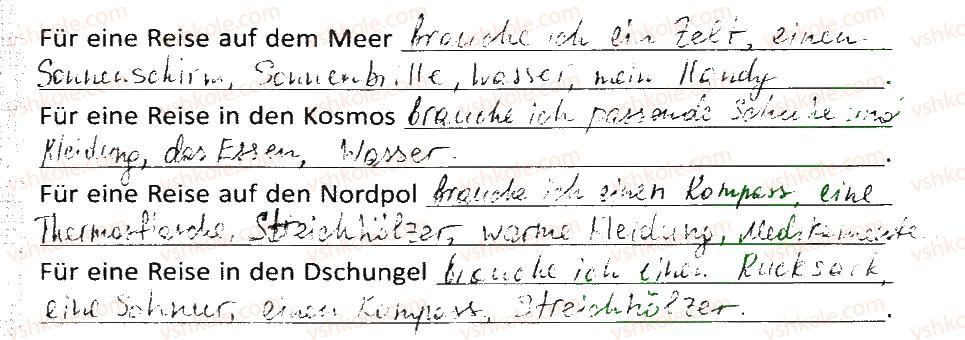 Für eine Reise auf dem Meer brauche ich ein Zelt, einen
Sonnenschirm, Sonnenbrille, Wasser, mein Handy.
Für eine Reise in den Kosmos brauche ich passende Schuhe und
Kleidung, das Essen, Wasser.
Für eine Reise auf den Nordpol brauche ich einen Kompass, eine
Thermosflasche, Streichhölzer, warme Kleidung, Medikamente.
Für eine Reise in den Dschungel brauche ich einen Rucksack,
eine Schnur, einen Kompass, Streichhölzer.